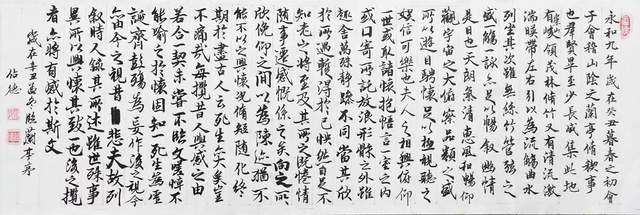 永和九年歲在癸丑暮春之初會
于會稽山陰之蘭亭脩稧事
也羣賢畢至少長咸集此地
有峻領茂林脩竹又有清流激
湍暎帶左右引以為流觴曲水
列坐其次雖無絲竹管弦之
盛一觴一詠亦足以暢敘幽情
是日也天朗氣清惠風和暢仰
觀宇宙之大俯察品類之盛
所以遊目騁懷足以極視聽之
娛信可樂也夫人之相與俯仰
一世或取諸懷抱悟言一室之內
或因寄所託放浪形骸之外雖
趣舍萬殊靜躁不同當其欣
於所遇暫得於己怏然自足不
知老之將至及其所之既惓情
隨事遷感慨係之矣向之所
欣俛仰之間以為陳迹猶不
能不以之興懷況脩短隨化終
期於盡古人云死生亦大矣豈
不痛哉每攬昔人興感之由
若合一契未嘗不臨文嗟悼不
能喻之於懷固知一死生為虛
誕齊彭殤為妄作後之視今
亦由今之視昔悲夫故列
敘時人錄其所述雖世殊事
異所以興懷其致一也後之攬
者亦將有感於斯文
歲在辛丑孟冬臨蘭亭序
佑德